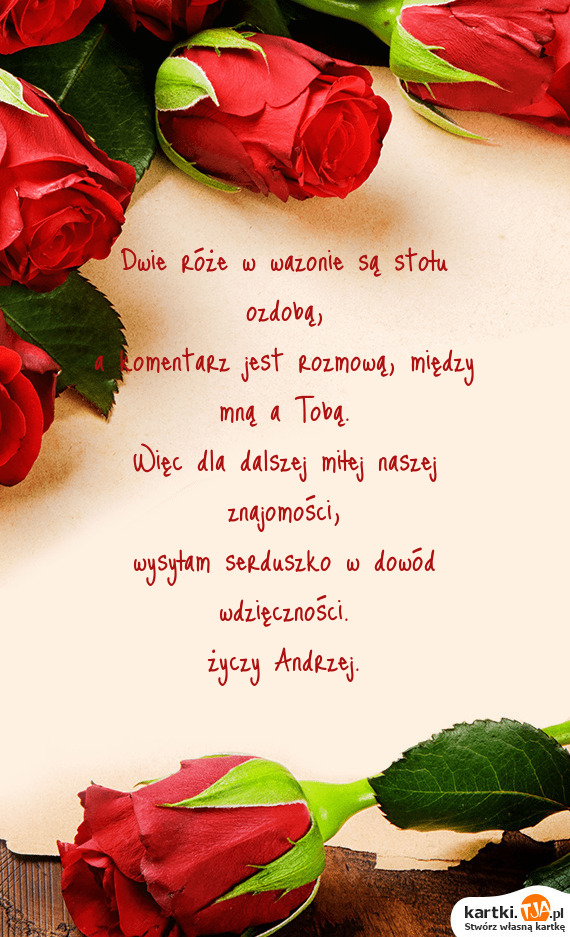 Dwie róże w wazonie są stołu
ozdobą,
a komentarz jest rozmową, między
mną a Tobą.
Więc dla dalszej miłej naszej
znajomości,
wysyłam serduszko w dowód
wdzięczności.
życzy Andrzej.
kartki.TJA.pl
Stwórz własną kartkę